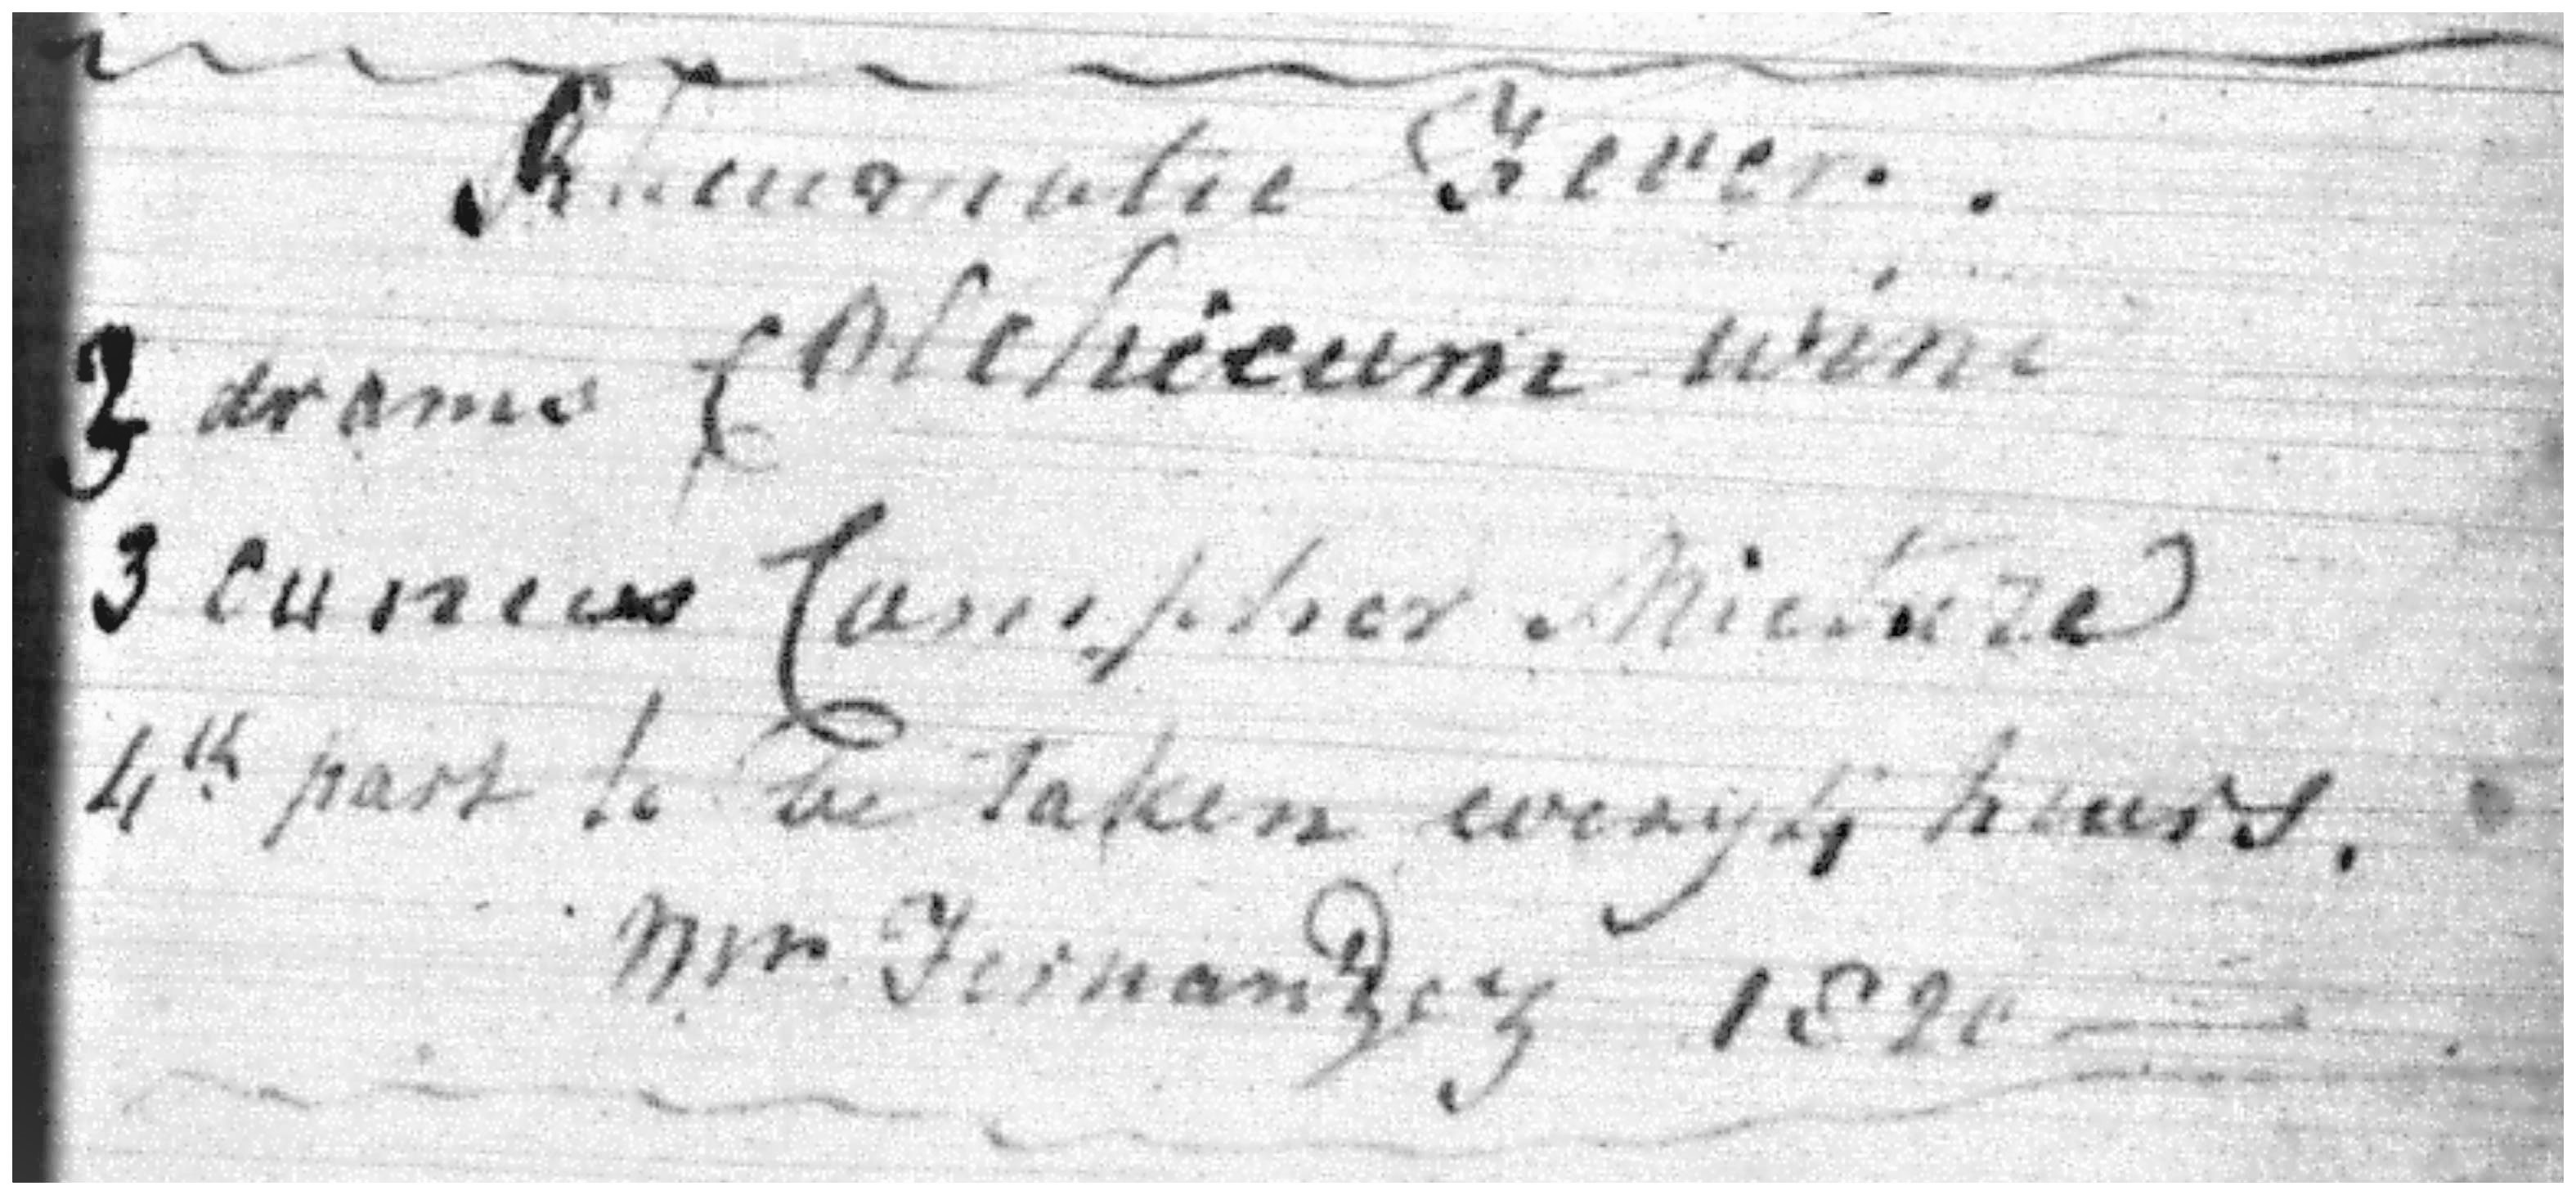 Rheumatic Fever.
3 drams Colchicum wine
3 ounces Campher Mixture
4th part to be Taken every 4 hours.
Mr Fernandez 1820